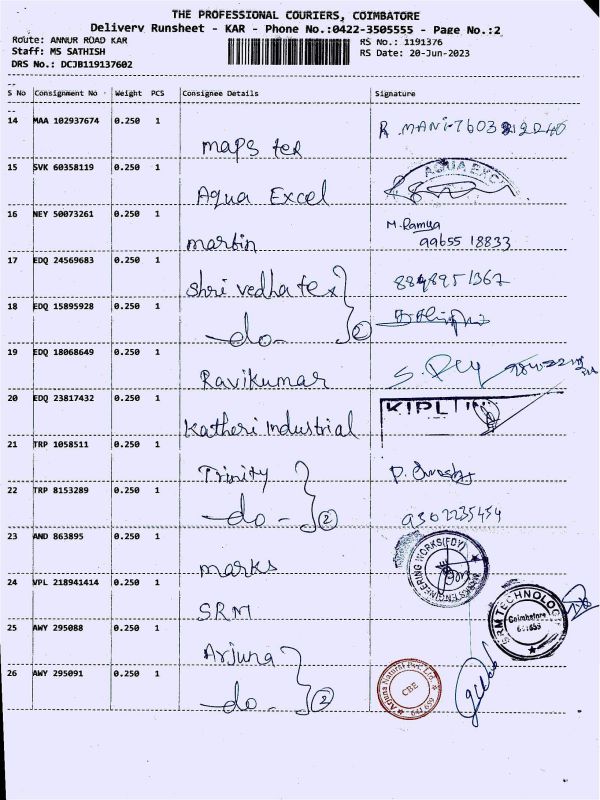 THE PROFESSIONAL COURIERS, COIMBATORE
Delivery Runsheet - KAR - Phone No.:0422-3505555 - Page No.:2
Route: ANNUR ROAD KAR
Staff: MS SATHISH
DRS No.: DCJB119137602
RS No.: 1191376
RS Date: 20-Jun-2023
S No Consignment No Weight PCS Consignee Details Signature
14 MAA 102937674 0.250 1 maps tex R. MANI-7603
15 SVK 60358119 0.250 1 Aqua Excel AQUA EXCEL
16 NEY 50073261 0.250 1 martin M. Ramya
99655 18833
17 EDQ 24569683 0.250 1 shri vedha tex
18 EDQ 15895928 0.250 1 -do- 2
19 EDQ 18068649 0.250 1 Ravikumar
20 EDQ 23817432 0.250 1 Katheri Industrial KIPL
21 TRP 1058511 0.250 1 Trinity P.
22 TRP 8153289 0.250 1 -do- 2 9362235454
23 AND 863895 0.250 1 marks MARKS ENGINEERING WORKS(FDY)
24 VPL 218941414 0.250 1 SRM SRM TECHNOLOGY
Coimbatore
641659
25 AWY 295088 0.250 1 Arjuna
26 AWY 295091 0.250 1 -do- 2 Arjuna Natural Pvt. Ltd.
CBE
641 659